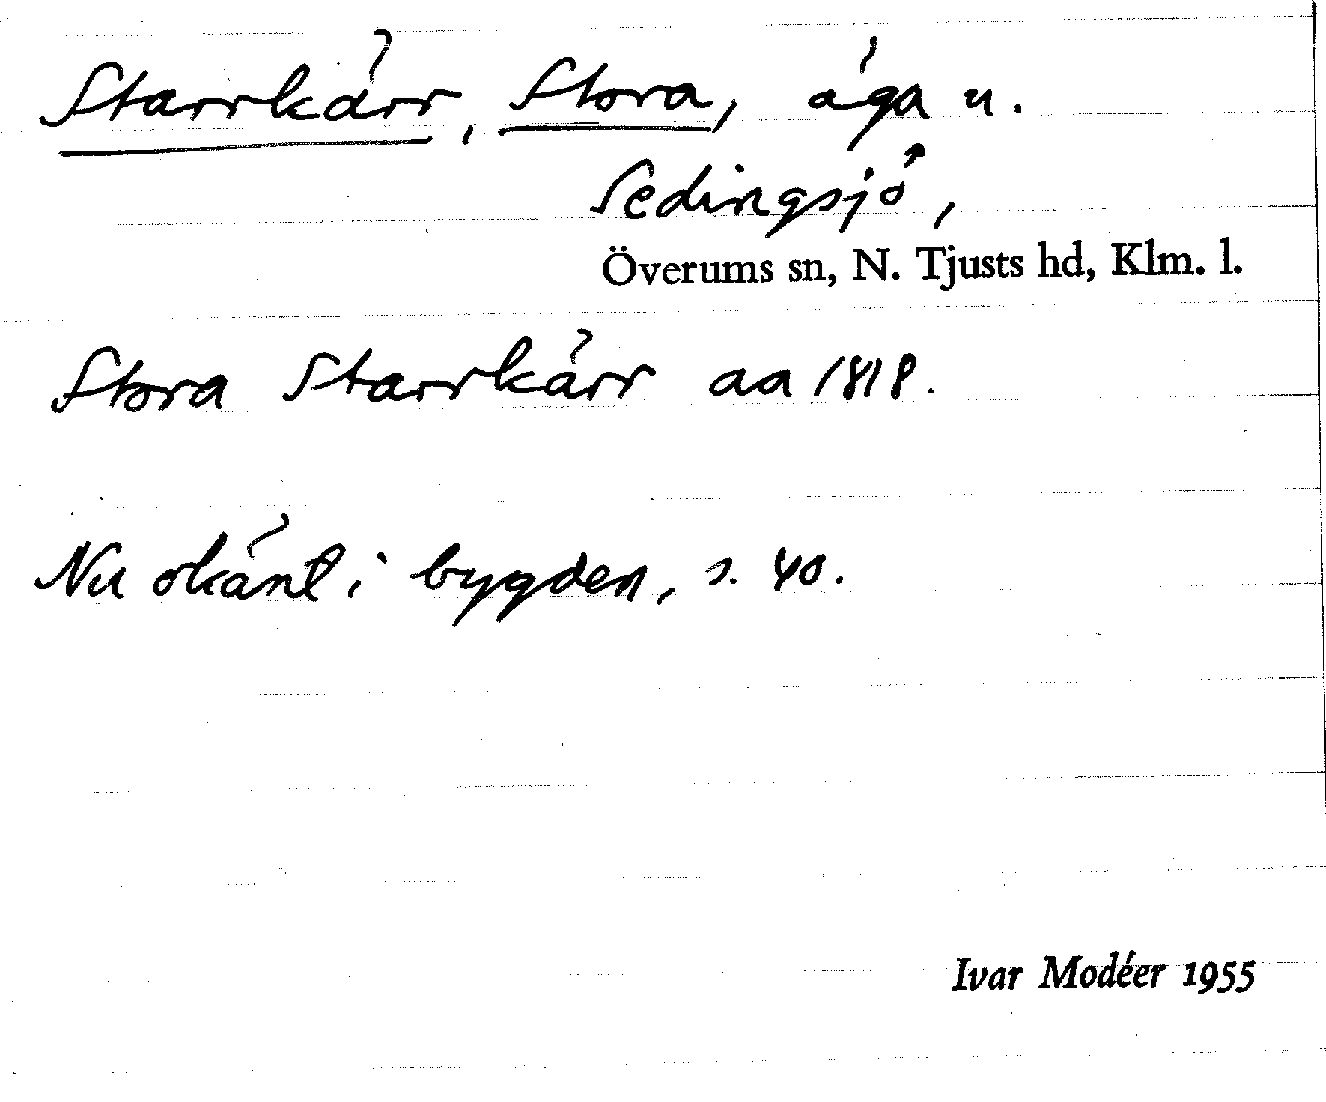 Starrkärr, Stora, äga u.
Sedingsjö,
Överums sn, N. Tjusts hd, Klm. l.
Stora Starrkärr aa 1818.
Nu okänt i bygden, s. 40.
Ivar Modéer 1955